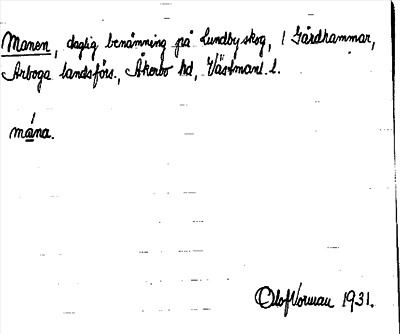 Manen, daglig benämning på Lundbyskog, 1 Gårdhammar,
Arboga landsförs., Åkerbo hd, Västmanl. l.
mána.
Olof Norman 1931.